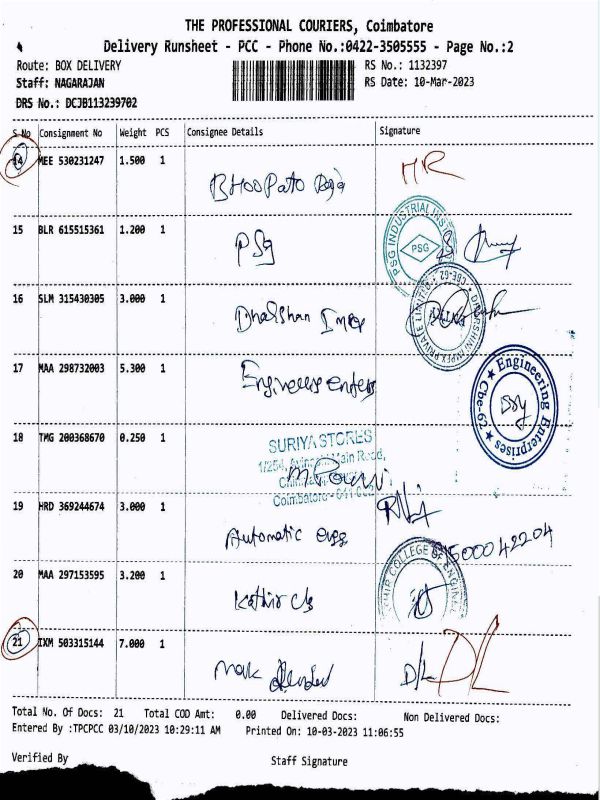 THE PROFESSIONAL COURIERS, Coimbatore
Delivery Runsheet - PCC - Phone No.:0422-3505555 - Page No.:2
Route: BOX DELIVERY RS No.: 1132397
Staff: NAGARAJAN RS Date: 10-Mar-2023
DRS No.: DCJB113239702
S No Consignment No Weight PCS Consignee Details Signature
14 MEE 530231247 1.500 1
MR
15 BLR 615515361 1.200 1
PSG
PSG INDUSTRIAL INST
PSG
16 SLM 315430305 3.000 1
Dharshan Impex
DHARSHINI IMPEX PRIVATE LIMITED CBE-62
17 MAA 298732003 5.300 1
Engineering Enterprises Cbe-62
18 TMG 200368670 0.250 1
SURIYA STORES
1/254, Main Road,
Coimbatore - 641
19 HRD 369244674 3.000 1
Automatic
20 MAA 297153595 3.200 1
Kathir
COLLEGE OF ENGINEE
21 IXM 503315144 7.000 1
D/L DL
Total No. Of Docs: 21 Total COD Amt: 0.00 Delivered Docs: Non Delivered Docs:
Entered By :TPCPCC 03/10/2023 10:29:11 AM Printed On: 10-03-2023 11:06:55
Verified By Staff Signature